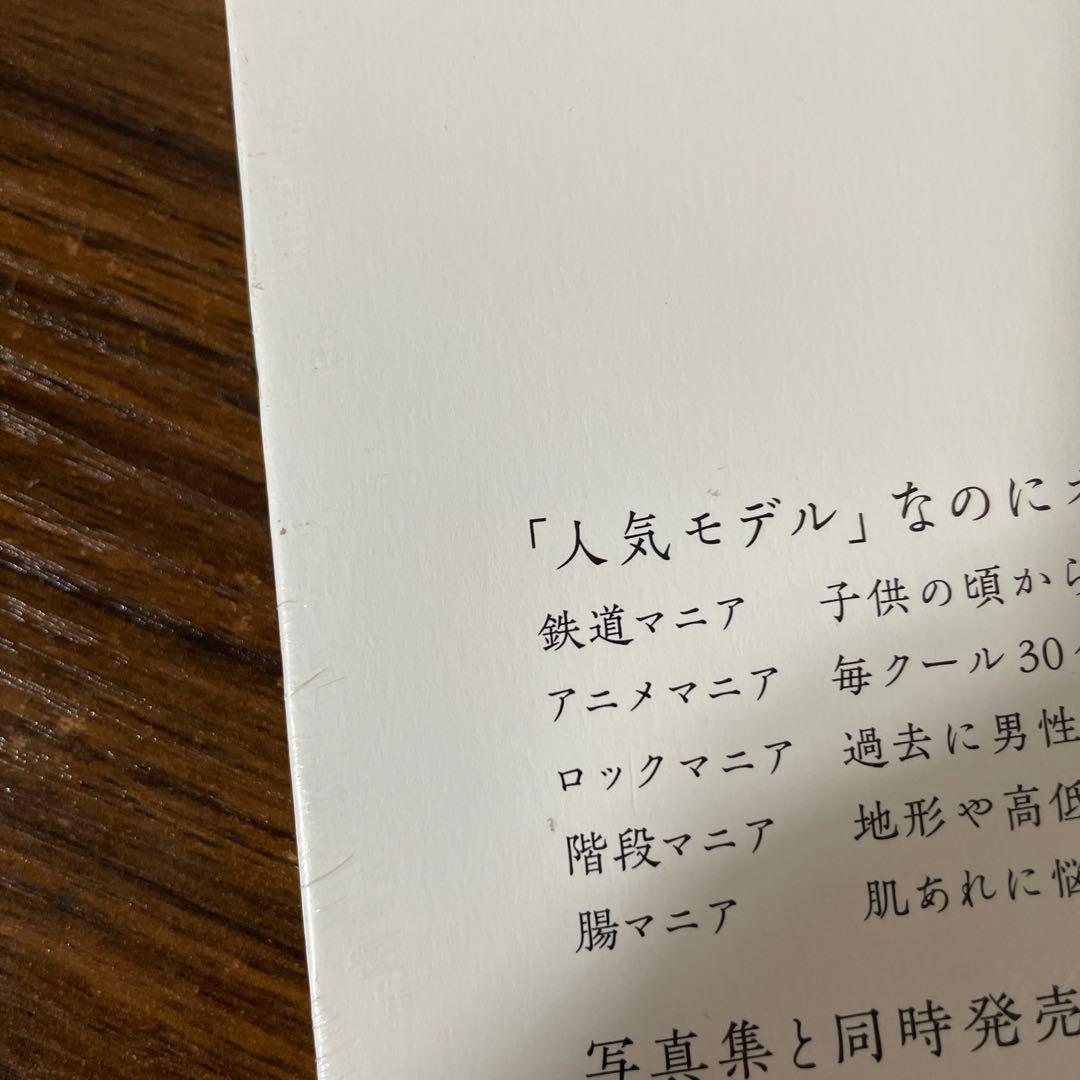 「人気モデル」なのに
鉄道マニア　子供の頃から
アニメマニア　毎クール30
ロックマニア　過去に男性
階段マニア　地形や高低
腸マニア　肌あれに悩
写真集と同時発売